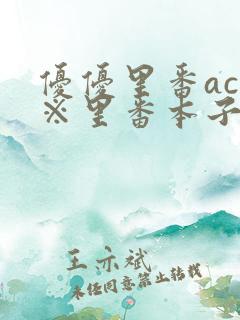 優優里番ac
※里番本子
王亦斌
未经同意禁止转载